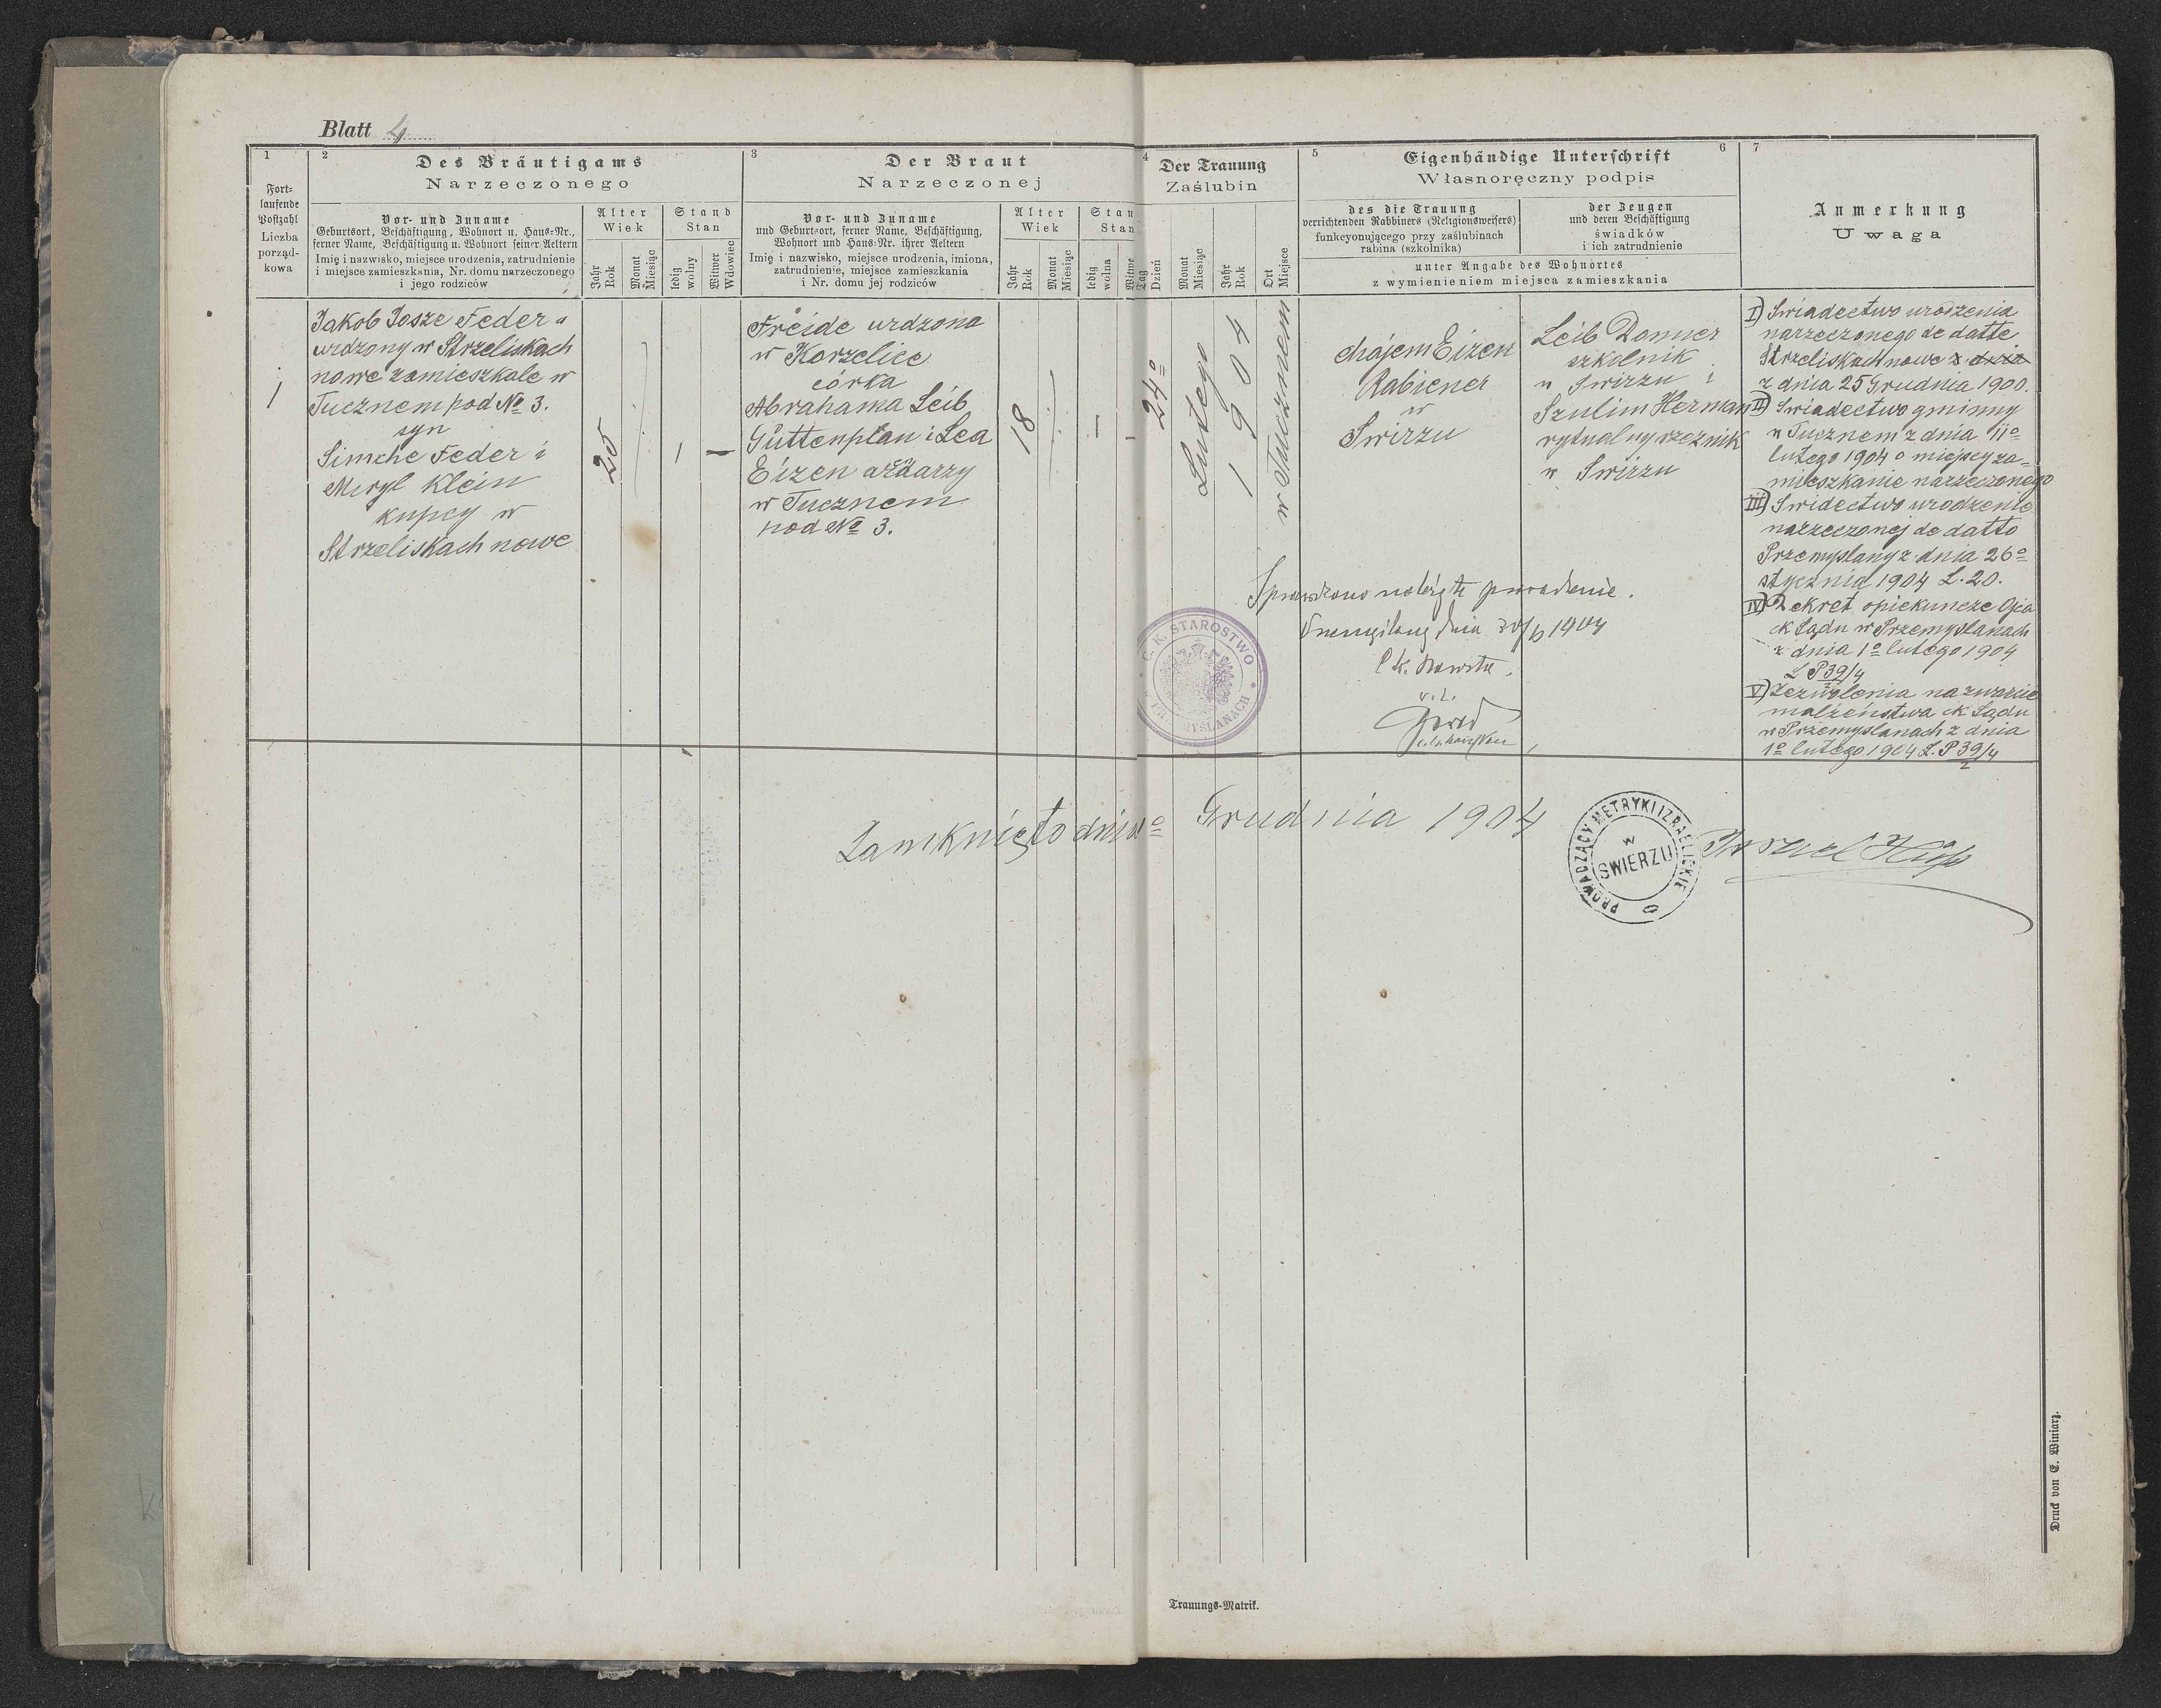 Blatt 4
1
Fort-
laufende
Postzahl
Liczba
porząd-
kowa
2
Des Bräutigams
Narzeczonego
Vor- und Zuname
Geburtsort, Beschäftigung, Wohnort u. Haus-Nr.,
ferner Name, Beschäftigung u. Wohnort seiner Aeltern
Imię i nazwisko, miejsce urodzenia, zatrudnienie
i miejsce zamieszkania, Nr. domu narzeczonego
i jego rodziców
Alter
Wiek
Jahr
Rok
Monat
Miesiąc
Stand
Stan
ledig
wolny
Witwer
Wdowiec
3
Der Braut
Narzeczonej
Vor- und Zuname
und Geburtsort, ferner Name, Beschäftigung,
Wohnort und Haus-Nr. ihrer Aeltern
Imię i nazwisko, miejsce urodzenia, imiona,
zatrudnienie, miejsce zamieszkania
i Nr. domu jej rodziców
Alter
Wiek
Jahr
Rok
Monat
Miesiąc
Stan
Stan
ledig
wolna
Witwe
4
Der Trauung
Zaślubin
Tag
Dzień
Monat
Miesiąc
Jahr
Rok
Ort
Miejsce
5
Eigenhändige Unterschrift
6
Własnoręczny podpis
des die Trauung
verrichtenden Rabbiners (Religionsweisers)
funkcyonującego przy zaślubinach
rabina (szkolnika)
der Zeugen
und deren Beschäftigung
świadków
i ich zatrudnienie
unter Angabe des Wohnortes
z wymienieniem miejsca zamieszkania
7
Anmerkung
Uwaga
1
Jakob Josze Feder
urdzony w Strzeliskach
nowe zamieszkale w
Tucznem pod No 3.
syn
Simche Feder i
Meryl Klein
kupcy w
Strzeliskach nowe
25
1
Freide urdzona
w Korzelice
córka
Abrahama Leib
Guttenplan i Lea
Eizen arędarzy
w Tucznem
pod No 3.
18
1
24o
Lutego
1904
w Tucznem
Chajem Eizen
Rabiener
w
Swirzu
Leib Donner
szkolnik
w Swirzu i
Szulim Herman
rytualny rzeznik
w Swirzu
I) Swiadectwo urodzenia
narzeczonego de datte
Strzeliskach nowe z dnia
z dnia 25 Grudnia 1900.
II) Swiadectwo gminny
w Tucznem z dnia 11o
lutego 1904 o miejscy za=
mieszkanie narzeczonego
III) Swidectwo urodzenie
narzeczonej de datto
Przemyslany z dnia 26o
stycznia 1904 L. 20.
IV) Dekret opiekuncze Ojca
ck Sądu w Przemyslanach
z dnia 1o lutego 1904
L P 39/4
2
V) Zezwolenia na zwarcie
malżeństwa ck Sądu
w Przemyslanach z dnia
1o lutego 1904 L. P 39/4
2
Sprawdzono
dnia 1904
C. K. STAROSTWO
Zamknięto dnia Grudnia 1904
PROWADZĄCY METRYKI IZRAELICKIE
w
SWIERZU
Druck von E. Winiarz.
Trauungs-Matrik.